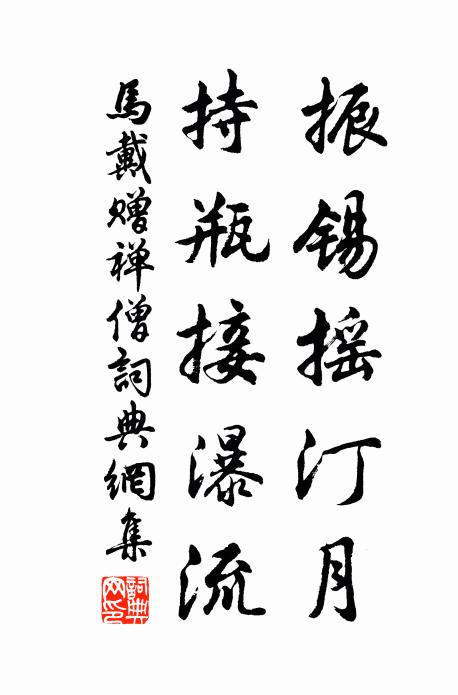 振锡摇汀月
持瓶接瀑流
馬戴赠禅僧詞典網集
詞典
网印